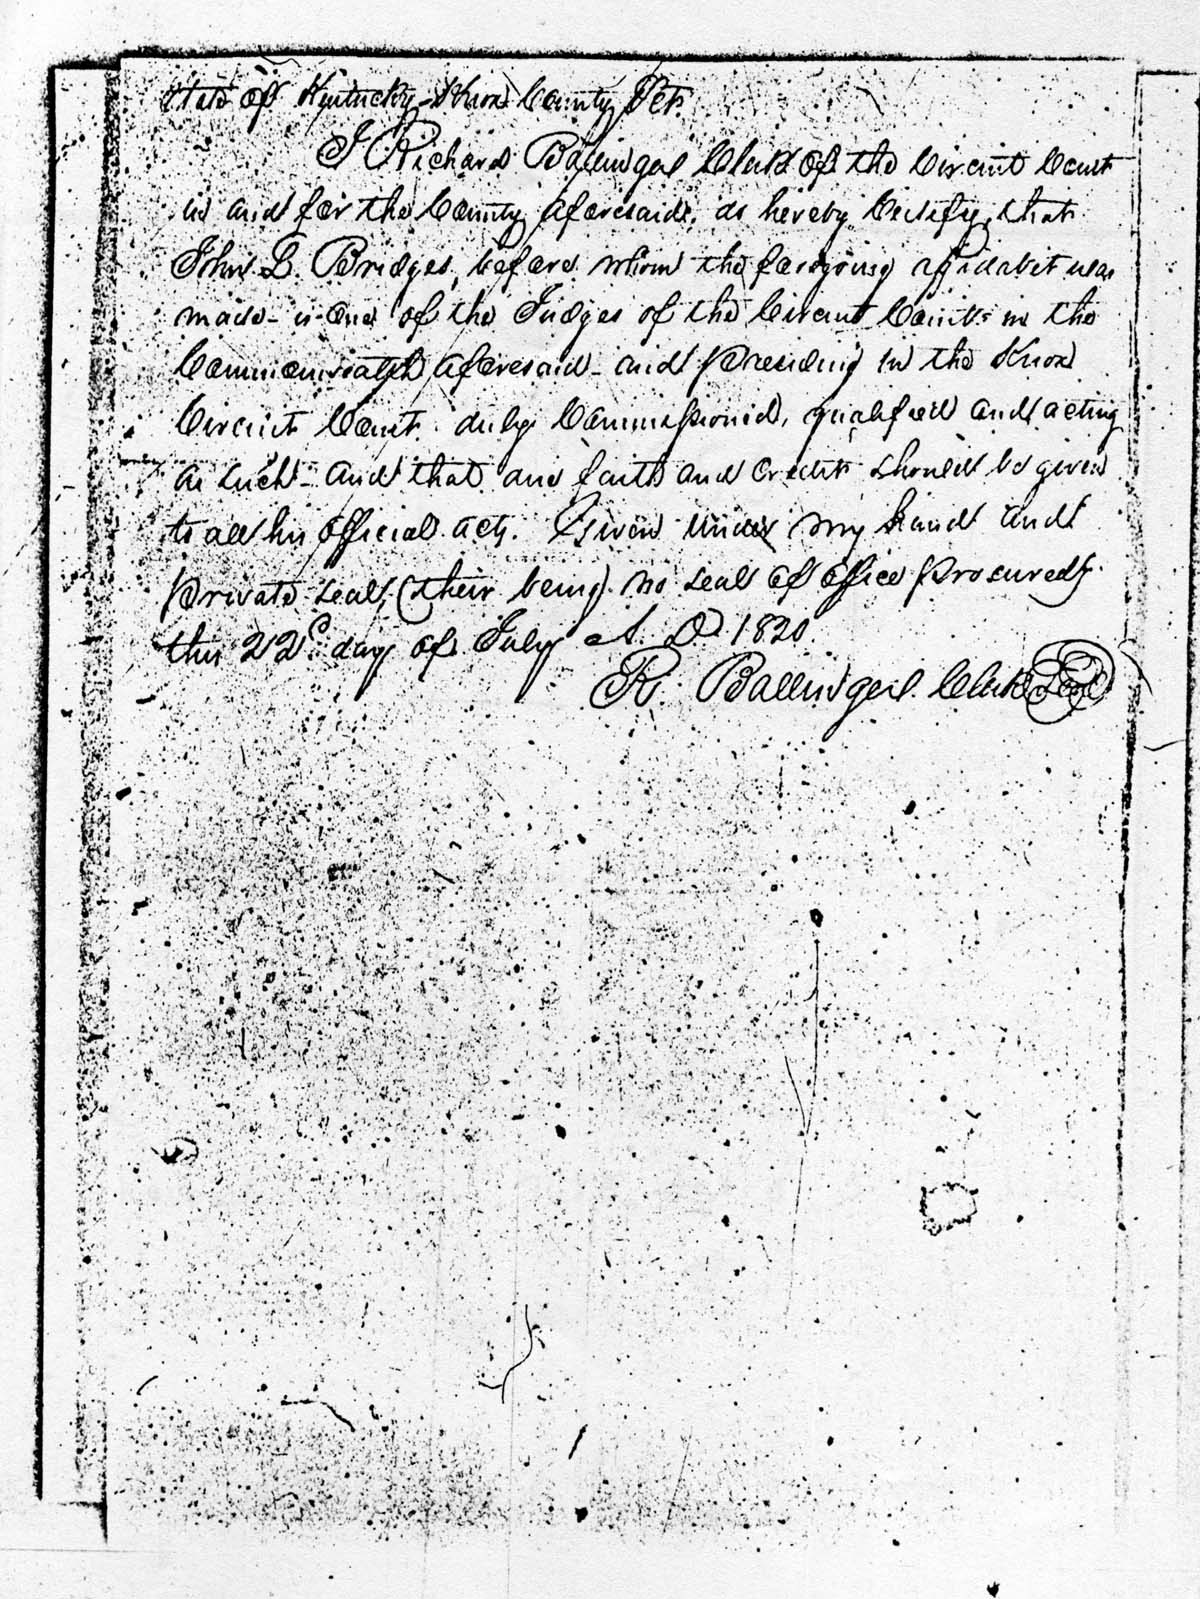 State of Kentucky Knox County Sct.
I Richard Ballinger Clerk of the Circuit Court
in and for the County aforesaid, do hereby Certify, that
John L. Bridges, before whom the foregoing affidavit was
made - is one of the Judges of the Circuit Courts in the
Commonwealth aforesaid - and Presiding in the Knox
Circuit Court duly Commissioned, qualified and acting
as such - and that due faith and credit should be given
to all his official acts. Given under my hand and
private seal, (their being no seal of office procured)
this 22d. day of July A. D. 1820.
R. Ballinger Clerk Seal